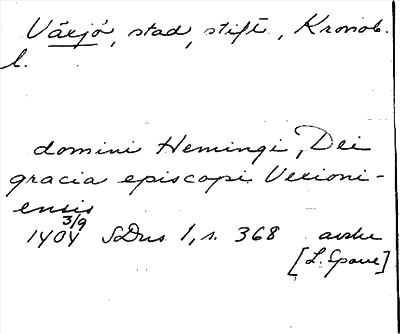 Växjö, stad, stift, Kronob.
l.
domini Hemingi, Dei
gracia episcopi Vexioni-
ensis
3/9
1404 SDns 1, s. 368 avskr
[L. Sparre]